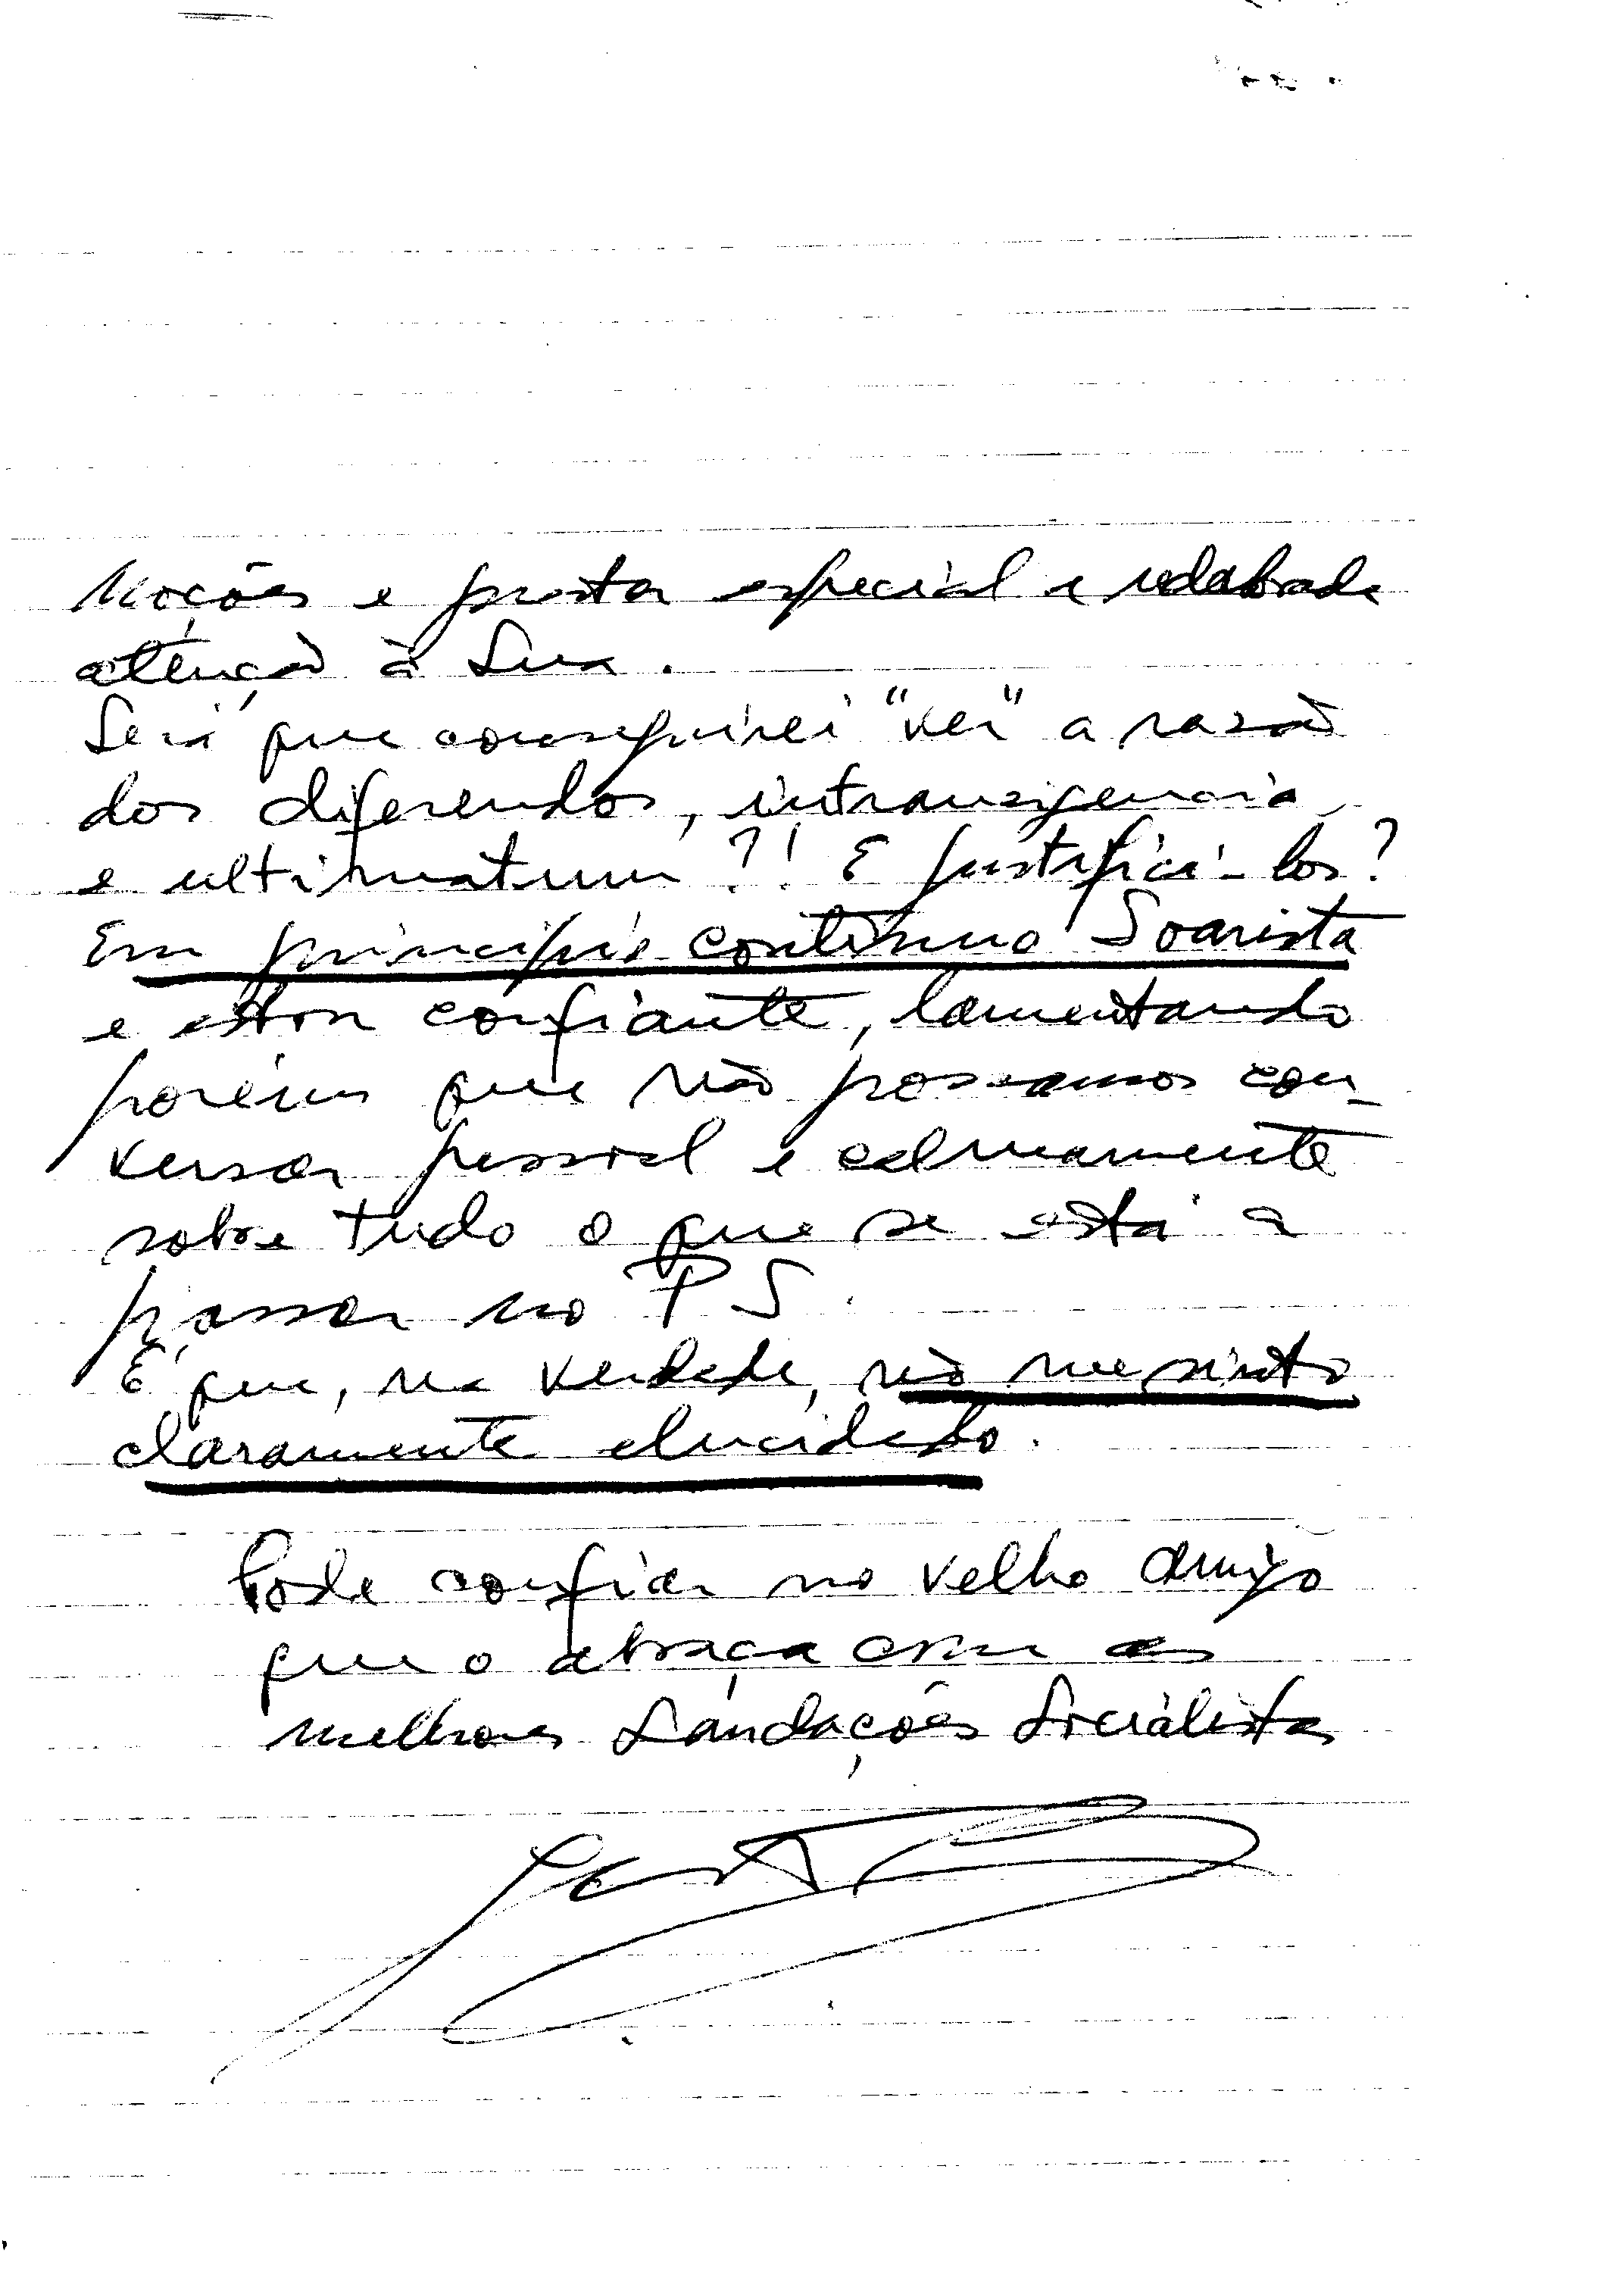 Moções e prestar especial e redobrada
atenção à Sua.
Será que conseguirei "ver" a razão
dos diferendos, intransigencia
e ultimatum?! E justificá-los?
Em principio continuo Soarista
e estou confiante, lamentando
porém que não possamos con-
versar pessoal e calmamente
sobre tudo o que se está a
passar no PS.
É que, na verdade, não me sinto
claramente elucidado.
Pode confiar no velho amigo
que o abraça com as
melhores Saudações Socialistas